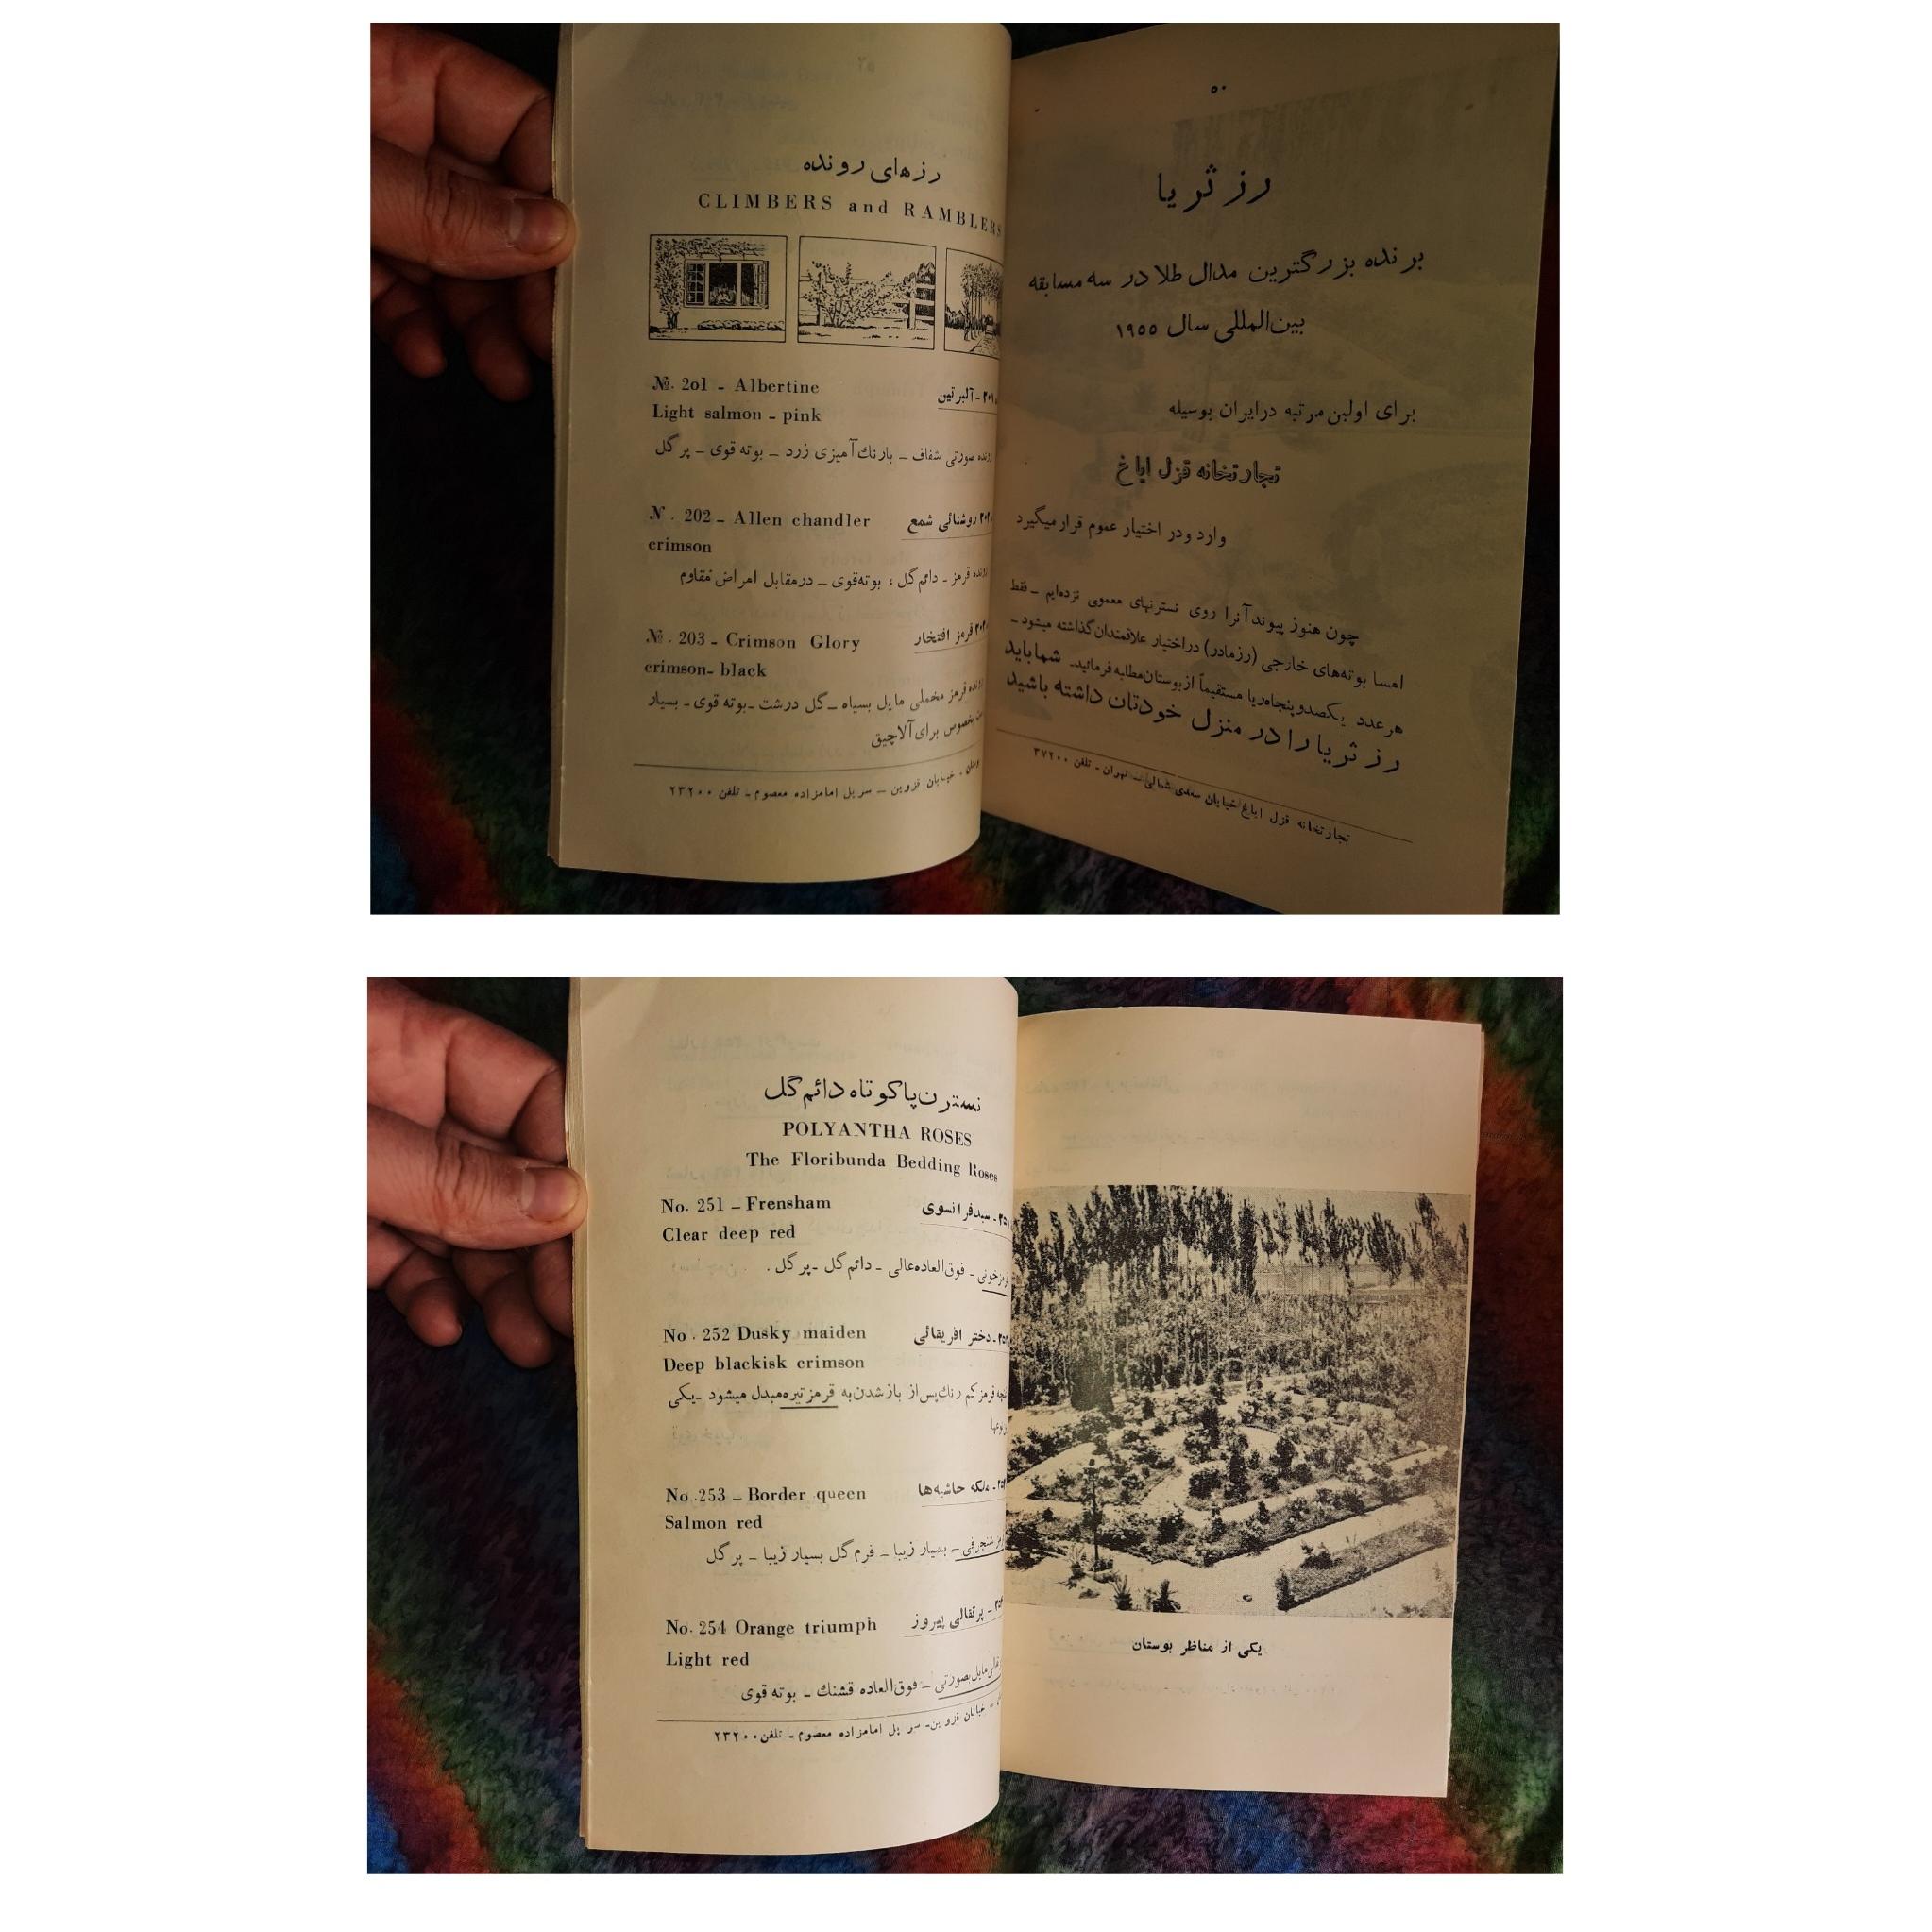 رزهای رونده
CLIMBERS and RAMBLERS
№. 2o1 - Albertine
۲۰۱ - آلبرتین
Light salmon - pink
رونده صورتی شفاف - بارنك آمیزی زرد - بوته قوی - پر گل
N . 202 - Allen chandler
روشنائی شمع
crimson
رونده قرمز - دائم گل ، بوته قوی - درمقابل امراض مقاوم
№. 203 - Crimson Glory
قرمز افتخار
crimson- black
رونده قرمز مخملی مایل بسیاه - گل درشت - بوته قوی - بسیار
بخصوص برای آلاچیق
بوستان - خیابان قزوین - سر پل امامزاده معصوم - تلفن ۲۳۲۰۰
۵۰
رز ثریا
برنده بزرگترین مدال طلا در سه مسابقه
بین‌المللی سال ۱۹۵۵
برای اولین مرتبه درایران بوسیله
تجارتخانه قزل ایاغ
وارد ودر اختیار عموم قرار میگیرد
چون هنوز پیوند آنرا روی نسترنهای معمولی نزده‌ایم - فقط
امسا بوته‌های خارجی (رزمادر) دراختیار علاقمندان گذاشته میشود -
هر عدد یکصدو پنجاه ریا مستقیماً از بوستان مطالبه فرمائید. شما باید
رز ثریا را در منزل خودتان داشته باشید
تجارتخانه قزل ایاغ خیابان سعدی شمالی تهران - تلفن ۳۷۲۰۰
نسترن پا کوتاه دائم گل
POLYANTHA ROSES
The Floribunda Bedding Roses
No. 251 - Frensham
۲۵۱ - سبد فرانسوی
Clear deep red
قرمز خونی - فوق‌العاده عالی - دائم گل - پر گل .
No . 252 Dusky maiden
دختر افریقائی
Deep blackisk crimson
غنچه قرمز کم رنك پس از باز شدن به قرمز تیره مبدل میشود - یکی
No .253 - Border queen
ملکه حاشیه‌ها
Salmon red
شنجرفی - بسیار زیبا - فرم گل بسیار زیبا - پر گل
No. 254 Orange triumph
پرتقالی پیروز
Light red
مایل بصورتی - فوق‌العاده قشنك - بوته قوی
خیابان قزوین - سر پل امامزاده معصوم - تلفن ۲۳۲۰۰
یکی از مناظر بوستان